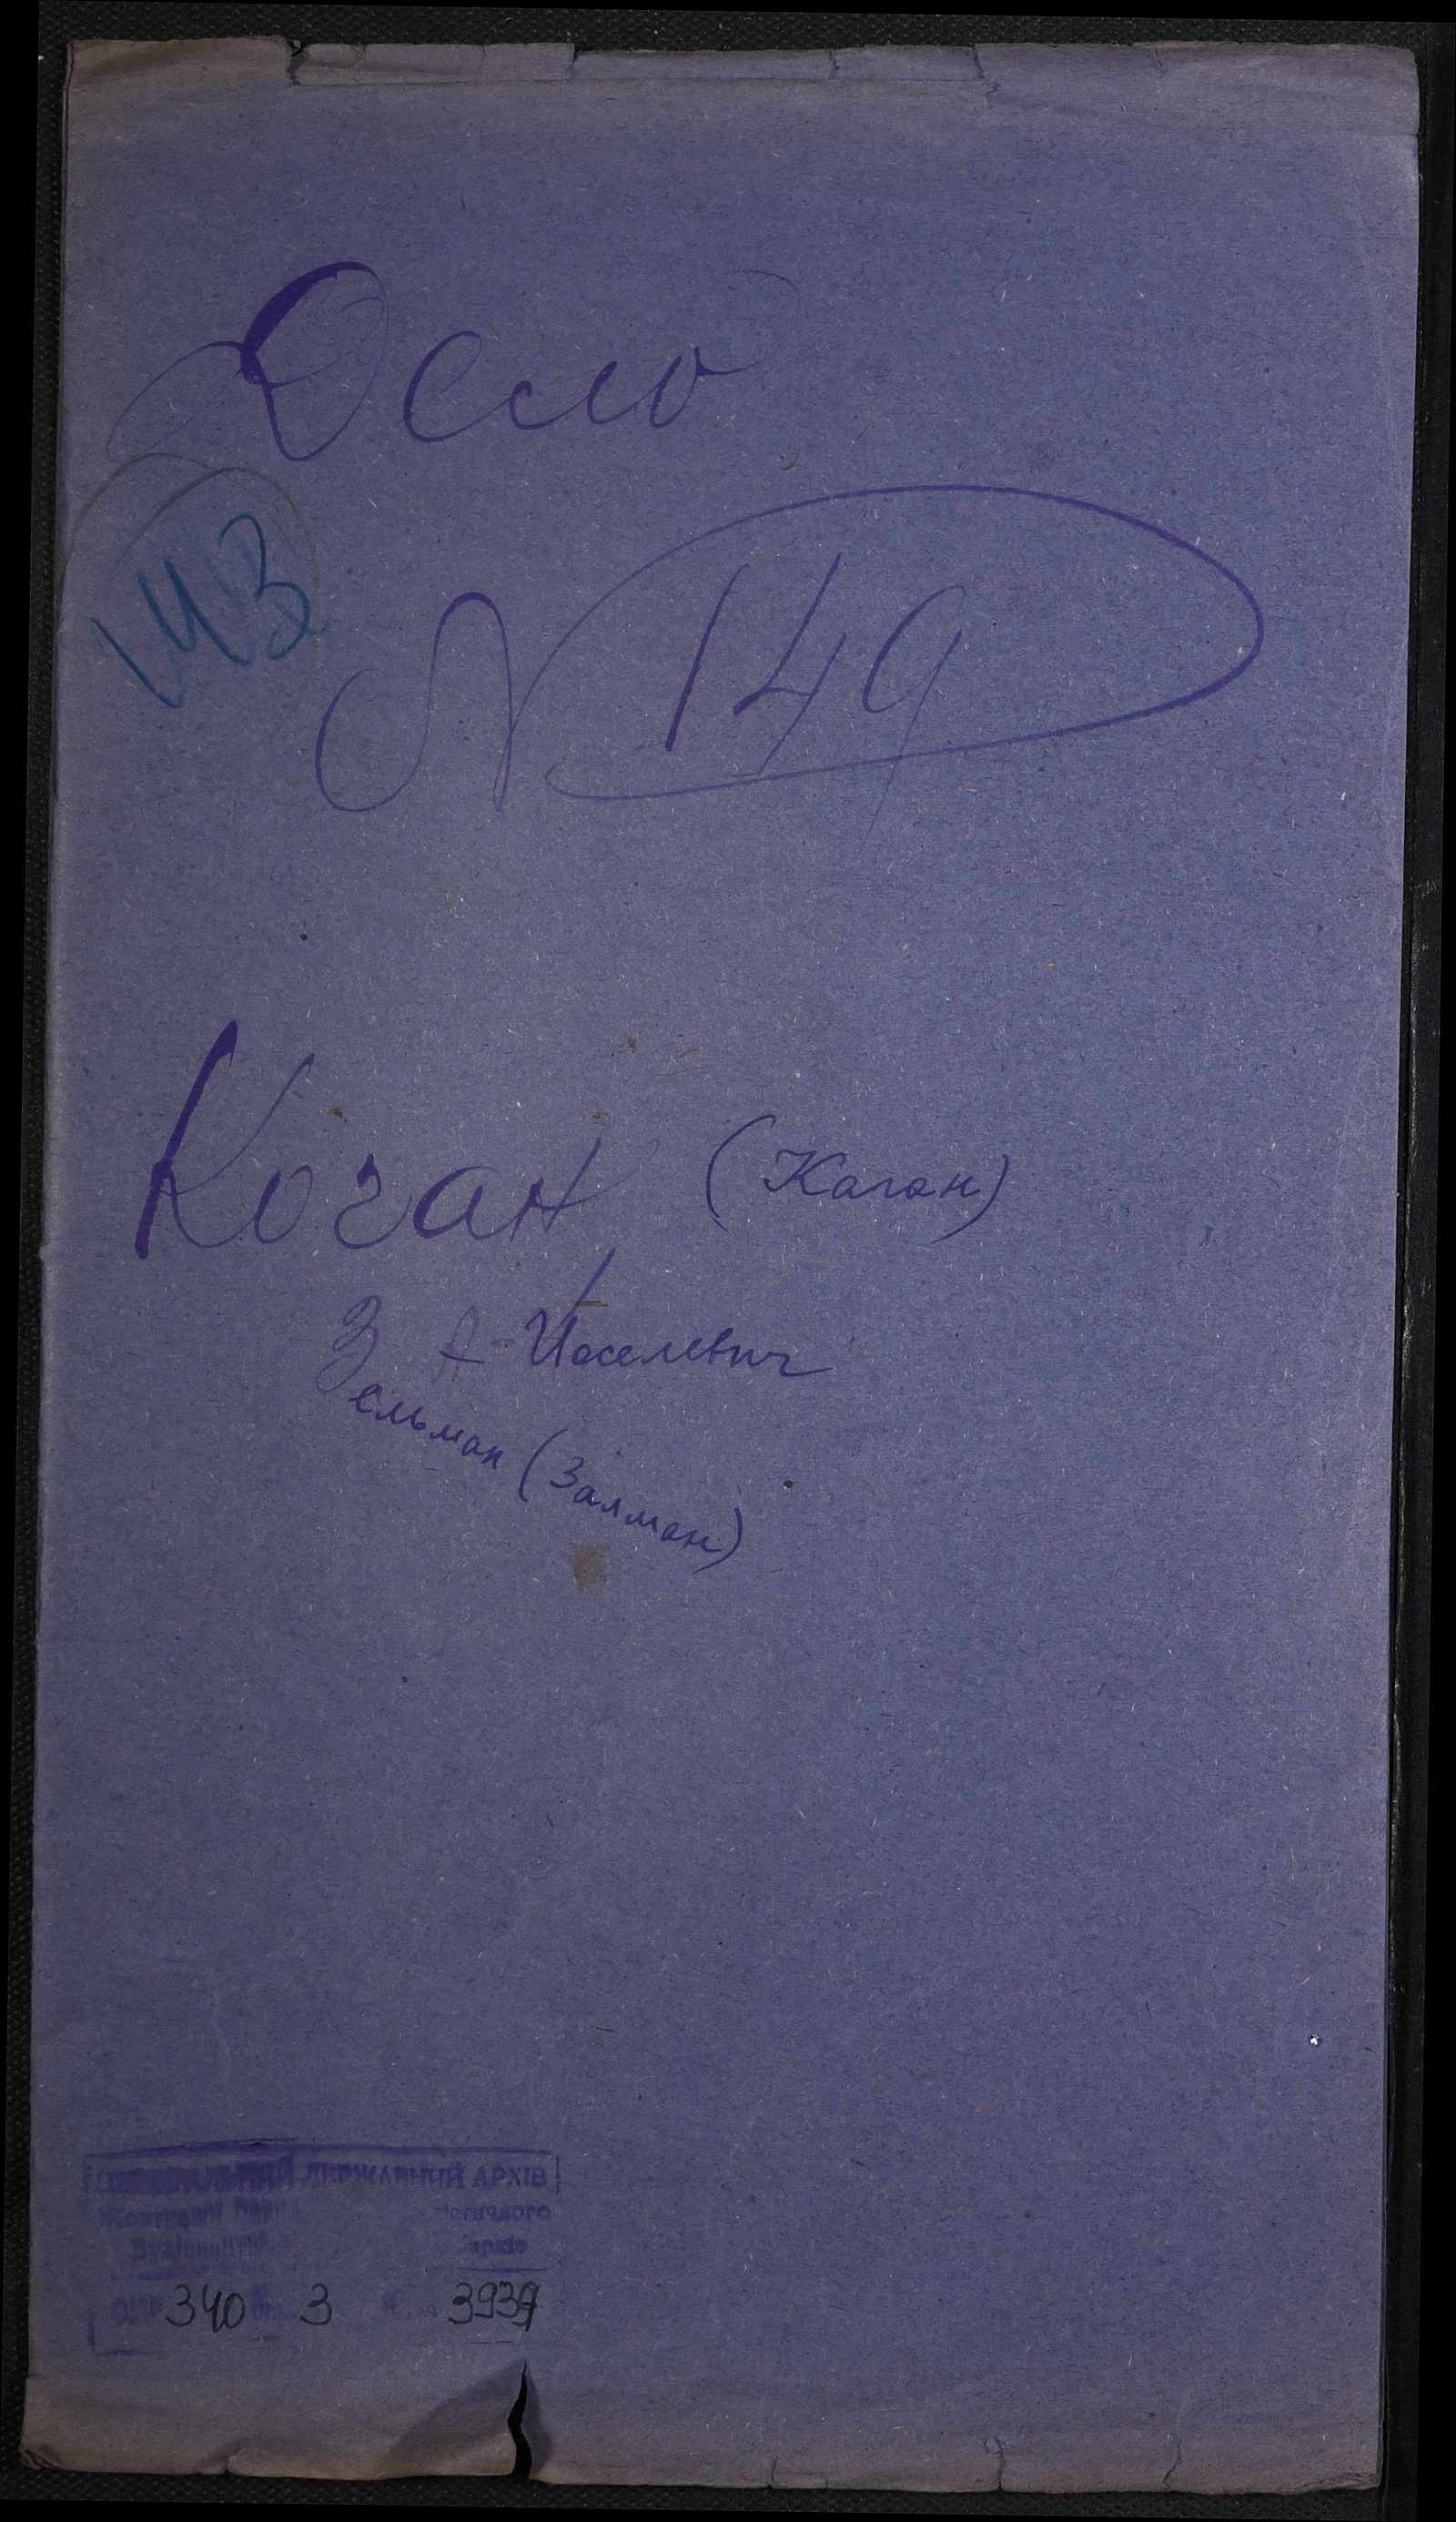 Дело
143
N 149
Коган (Каган)
З А-Иоселевич
ельман (Залман)
ДЕРЖАВНИЙ АРХІВ
340 3 3937